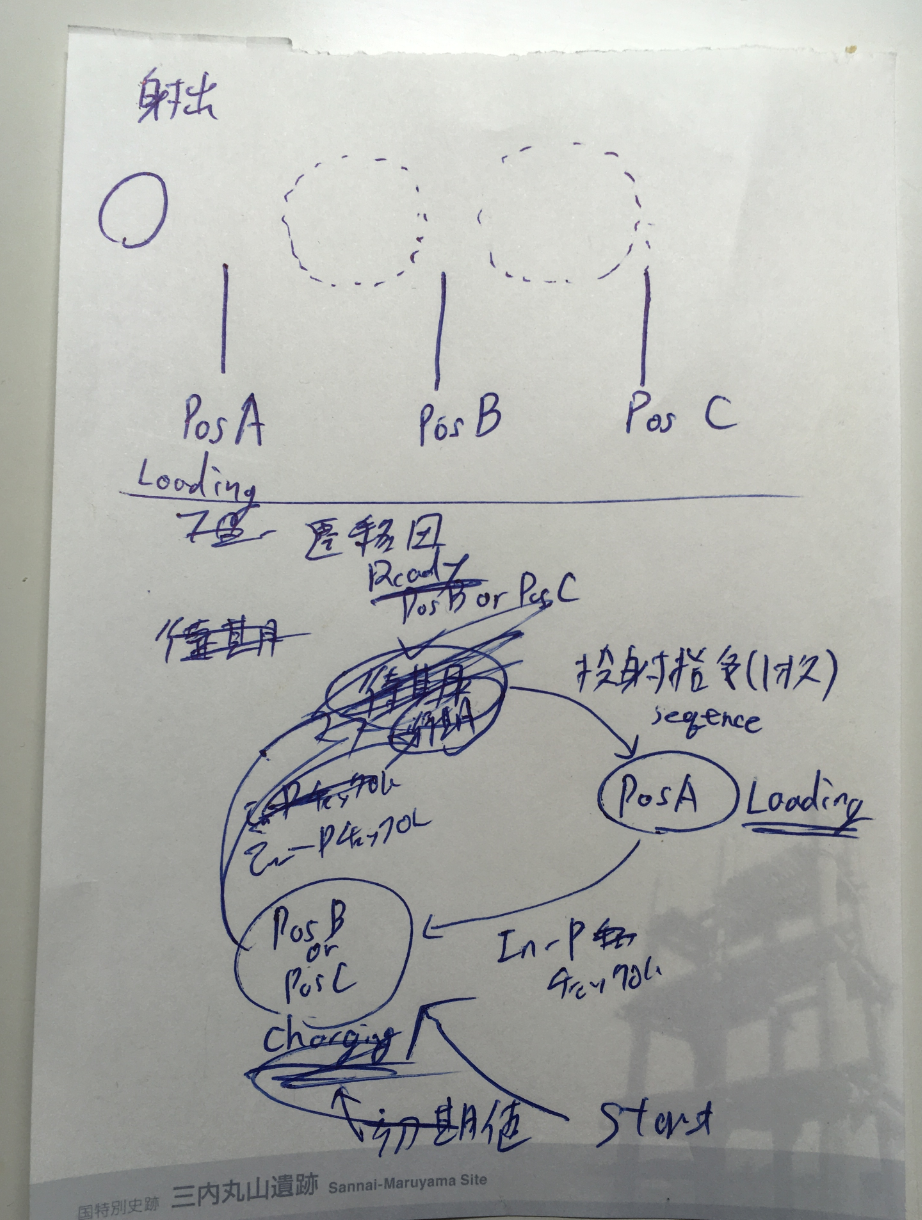 射出
Pos A
Pos B
Pos C
Loading
遷移図
Ready
Pos B or Pos C
待期
待期
投射指令(1択)
seqence
Pos A
Loading
In-Pチェック
Pos B
or
Pos C
In-P
チェックOk
Charging
初期値
Start
国特別史跡 三内丸山遺跡 Sannai-Maruyama Site